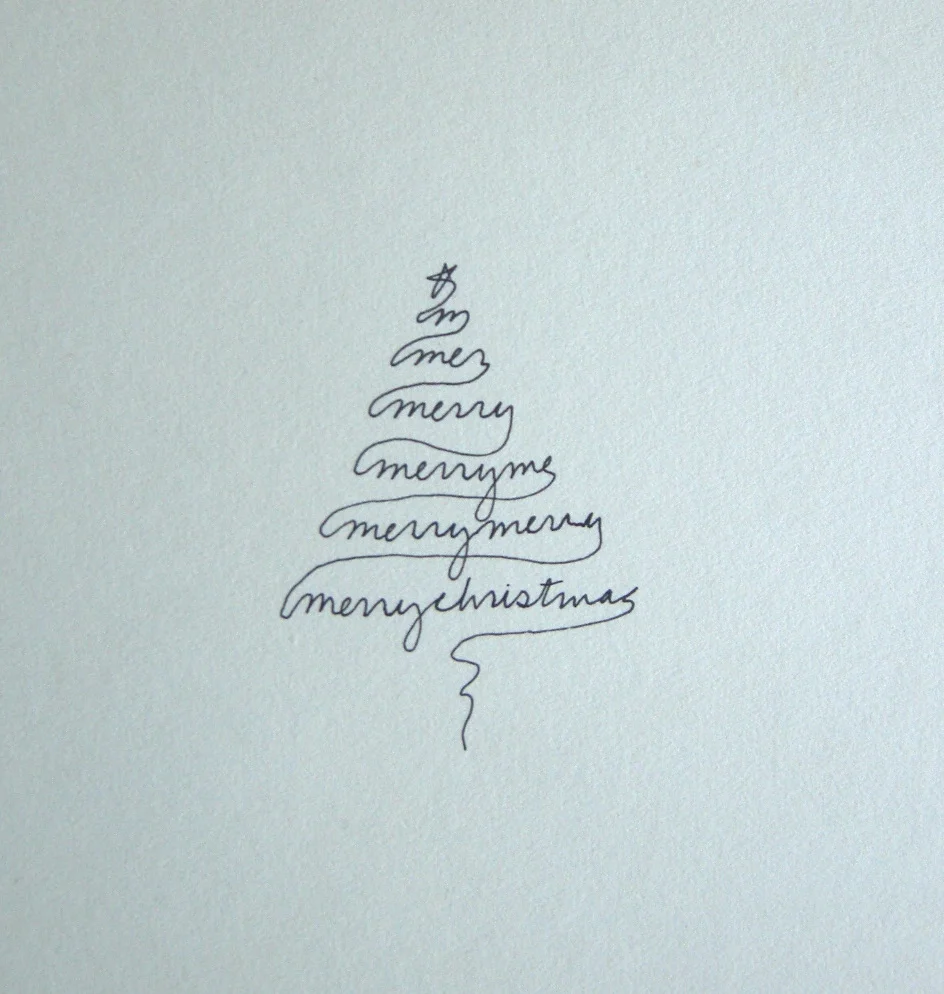 m
mer
merry
merryme
merrymerry
merrychristmas